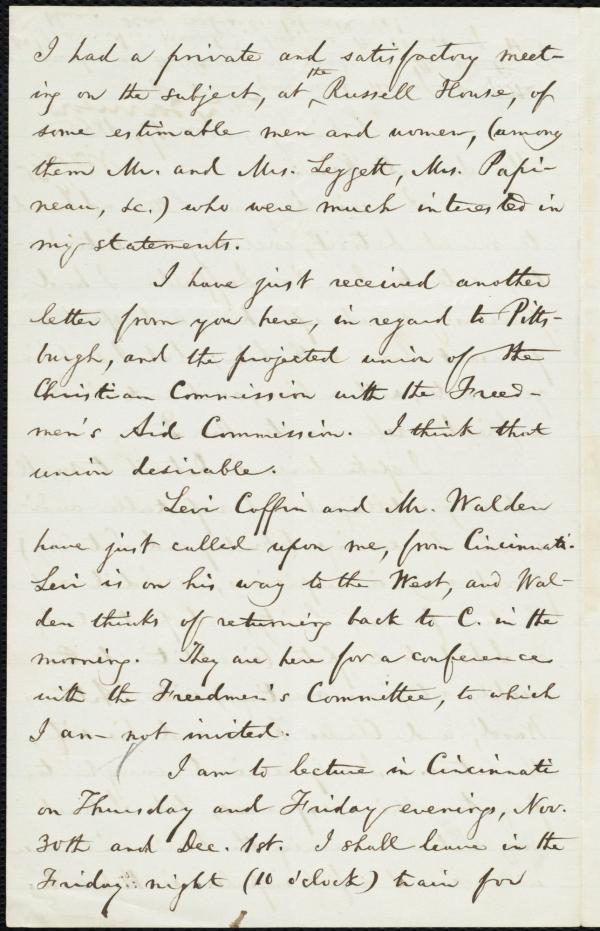 I had a private and satisfactory meet-
ing on the subject, at the Russell House, of
some estimable men and women, (among
them Mr. and Mrs. Leggett, Mrs. Papi-
neau, &c.) who were much interested in
my statements.
I have just received another
letter from you here, in regard to Pitts-
burgh, and the projected union of the
Christian Commission with the Freed-
men's Aid Commission. I think that
union desirable.
Levi Coffin and Mr. Walden
have just called upon me, from Cincinnati.
Levi is on his way to the West, and Wal-
den thinks of returning back to C. in the
morning. They are here for a conference
with the Freedmen's Committee, to which
I am not invited.
I am to lecture in Cincinnati
on Thursday and Friday evenings, Nov.
30th and Dec. 1st. I shall leave in the
Friday night (10 o'clock) train for